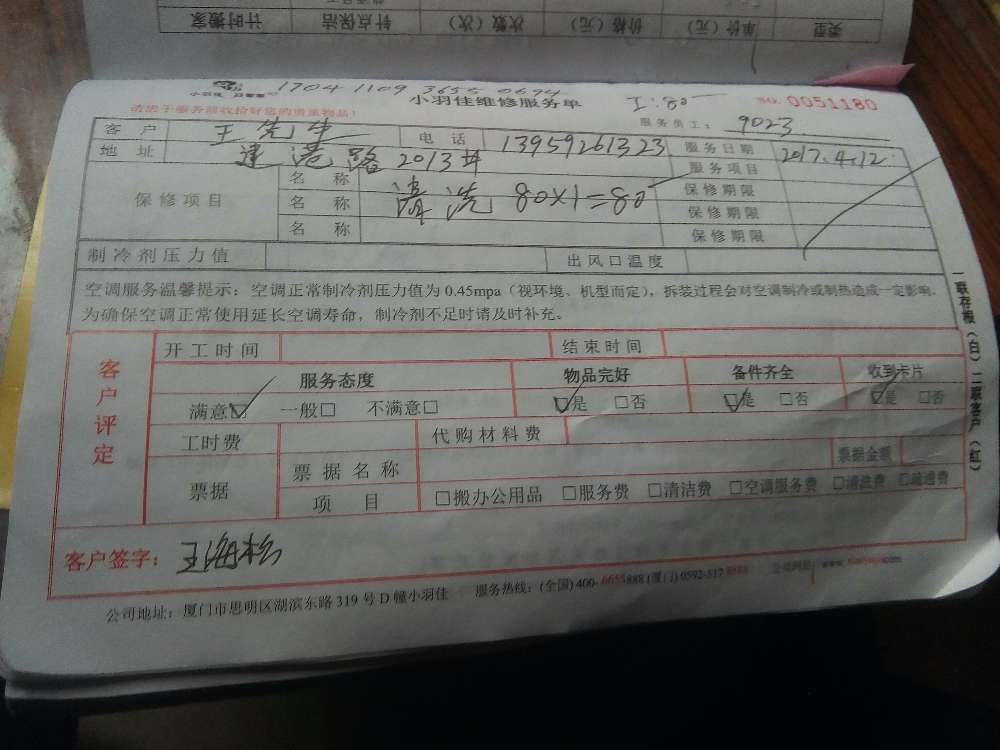 计时搬家 针点保洁 次数（次） 价格（元） 单价（元） 类型
1704 1109 3655 0694
小羽佳维修服务单
工:80
NO. 0051180
请您于服务前收拾好您的贵重物品！
服务员工： 9023
客户 王先生 电话 13959261323 服务日期 2017.4.12
地址 建港路2013坤 服务项目
保修项目 名称 保修期限
名称 清洗 80×1=80 保修期限
名称 保修期限
制冷剂压力值 出风口温度
空调服务温馨提示：空调正常制冷剂压力值为 0.45mpa（视环境、机型而定），拆装过程会对空调制冷或制热造成一定影响.
为确保空调正常使用延长空调寿命，制冷剂不足时请及时补充。
一联存根（白）二联客户（红）
客户评定
开工时间 结束时间
服务态度 物品完好 备件齐全 收到卡片
满意☑ 一般□ 不满意□ ☑是 □否 ☑是 □否 ☑是 □否
工时费 代购材料费
票据 票据名称 票据金额
项目 □搬办公用品 □服务费 □清洁费 □空调服务费 □清洗费 □疏通费
客户签字： 王海松
公司地址：厦门市思明区湖滨东路 319 号 D 幢小羽佳 服务热线：(全国) 400-6655888 (厦门) 0592-5178888